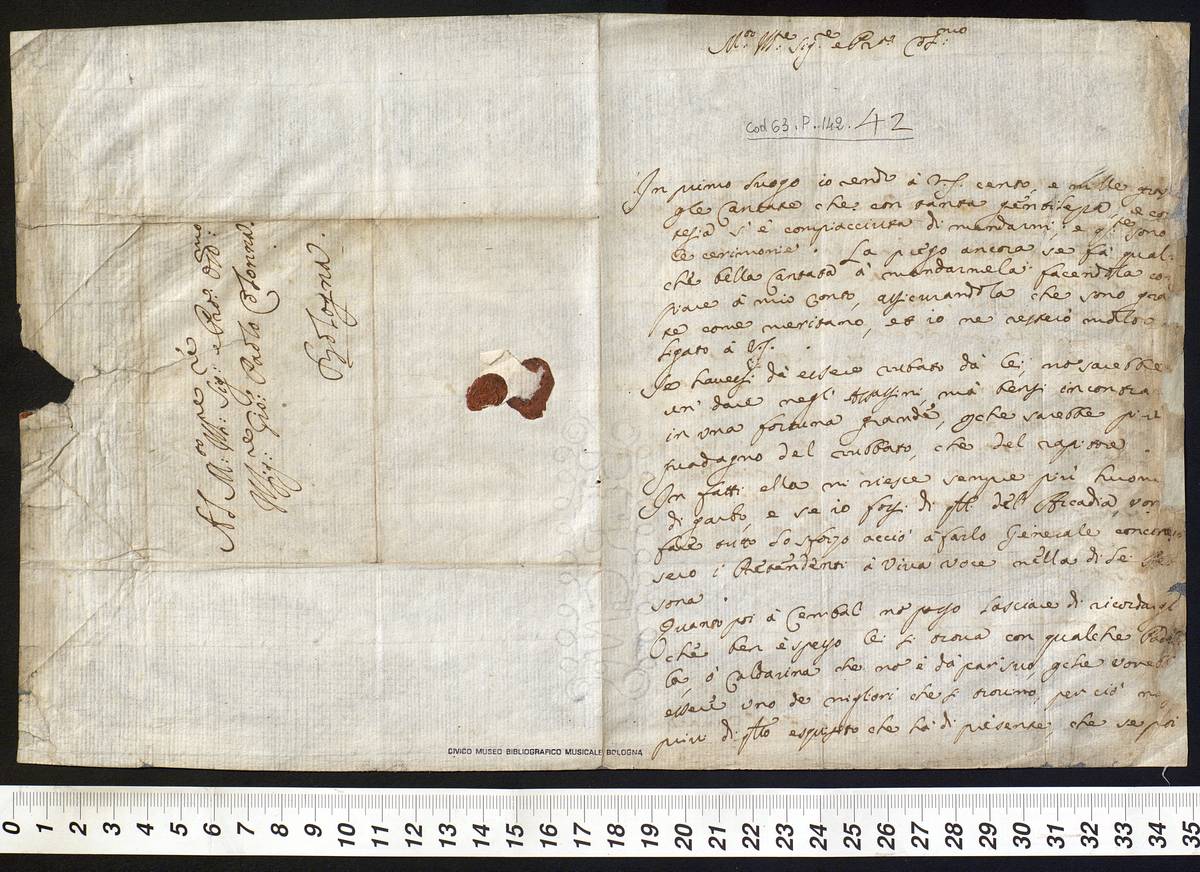 Al M.to Ill.re Sig.r e Pad.n Oss.mo
Il Sig.r Gio: Paolo Colonna.
Bologna.
M.to Ill.re Sig.re e Pad.ne Oss.mo
Cod 63. P. 142. 42
In primo luogo io rendo à V.S. cento, e mille gra
le Cantate che con tanta gentilezza, e cor
tesia si è compiacciuta di mandarmi, e sono
le cerimonie. La prego ancora se fà qual=
che bella Cantata à mandarmela facendola co
piare à mio conto, assicurandola che sono gra
te come meritano, et io ne resterò molto
ligato à V.S.
Se havessi dà essere rubato dà lei, no sarebbe
un dare negl'Assassini mà bensi incontra
in una fortuna grande, che sarebbe più il
guadagno del rubbato, che del rapitore
In fatti ella mi riesce sempre più huomo
di garbo, e se io fossi di dell'Arcadia, vor
fare tutto lo sforzo acciò à farlo Generale concorres
sero i Pretendenti à viva voce nella di Lei Per
sona.
Quanto poi à Cembal no posso lasciare di ricordargl
che ben è spesso lei si trova con qualche Pade
la, ò Caldarina che no è dà par suo, che vorebb
essere uno de migliori che si trovino, per ciò no
privi di esquisito che hà di presente, che se poi
CIVICO MUSEO BIBLIOGRAFICO MUSICALE BOLOGNA
0 1 2 3 4 5 6 7 8 9 10 11 12 13 14 15 16 17 18 19 20 21 22 23 24 25 26 27 28 29 30 31 32 33 34 35